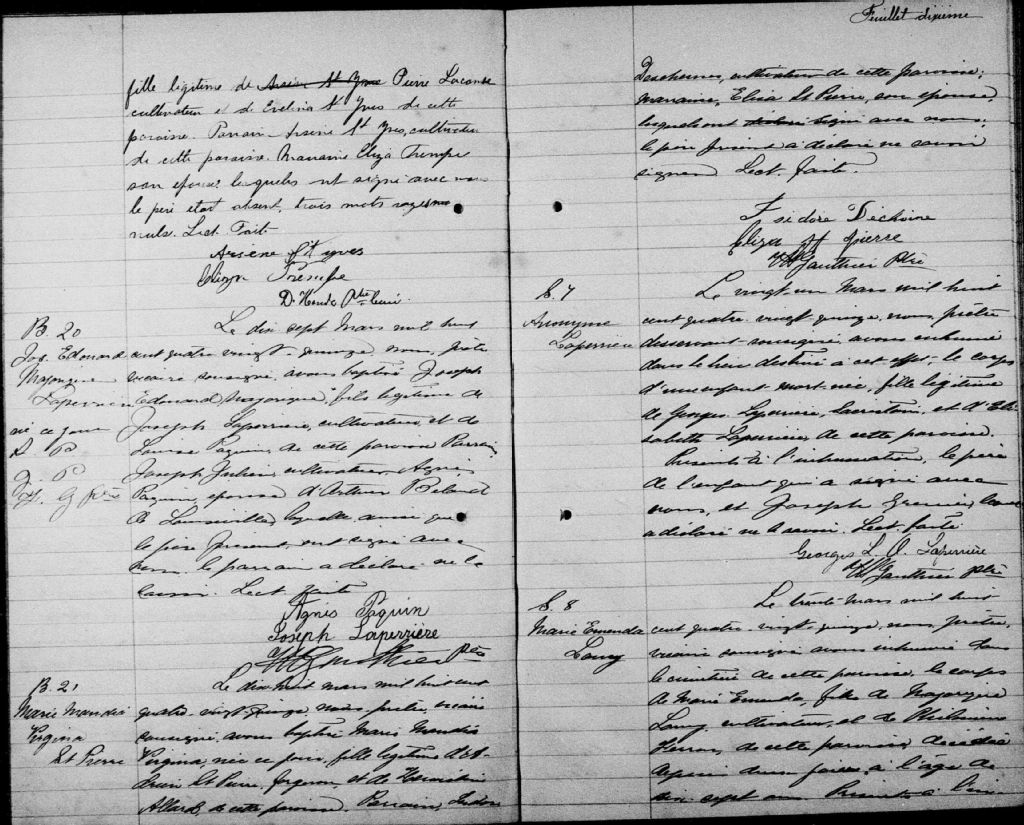 fille légitime de Arsène St Yves Pierre Lacombe
cultivateur et de Evelina St Yves de cette
paroisse. Parrain Arsène St Yves, cultivateur
de cette paroisse. Marraine Eliza Trempe
son épouse lesquels ont signé avec nous
le père étant absent, trois mots rayés
nuls. Lect. Faite
Arsène St yves
Trempe
Ptre Curé.
B. 20
Jos. Edouard
Majorique
Laperrière
né ce jour
A P
J. P
H. G ptre
Le dix sept Mars mil huit
cent quatre-vingt-quinze, nous, prêtre
vicaire soussigné, avons baptisé Joseph
Edouard Majorique, fils légitime de
Joseph Laperrière, cultivateur, et de
Louise Paquin, de cette paroisse. Parrain
Joseph Julien cultivateur, Agnis
Paquin, épouse d'Arthur Beland
de Louiseville, laquelle ainsi que
le père présent, ont signé avec
nous. le parrain a déclaré ne le
savoir. Lect. faite
Agnis Paquin
Joseph Laperrière
Gauthier Ptre
B. 21
Marie
Virgina
St Pierre
Le dix huit mars mil huit cent
quatre-vingt quinze, nous, prêtre, vicaire
soussigné, avons baptisé Marie
Virginia, née ce jour, fille légitime
St Pierre, forgeron, et de
Allard, de cette paroisse. Parrain, Isidore
Feuillet dixième
cultivateur de cette paroisse;
marraine, Elisa St Pierre, son épouse,
lesquels ont déclaré signé avec nous;
le père présent a déclaré ne savoir
signer Lect. faite.
Isidore Déchaine
Eliza St pierre
Gauthier Ptre
S. 7
Anonyme
Laperrière
Le vingt-un Mars mil huit
cent quatre-vingt quinze, nous prêtre
desservant soussigné, avons inhumé
dans le lieu destiné à cet effet le corps
d'un enfant mort-né, fille légitime
de Georges Laperrière, Sacristain, et d'Eli-
sabeth Laperrière, de cette paroisse.
Présents à l'inhumation, le père
de l'enfant qui a signé avec
nous, et Joseph Grenier,
a déclaré ne le savoir. Lect. faite
Georges L. O. Laperrière
Gauthier ptre
S. 8
Marie Emenda
Lamy
Le trente mars mil huit
cent quatre-vingt quinze, nous prêtre,
vicaire soussigné avons inhumé dans
le cimetière de cette paroisse, le corps
de Marie Emenda, fille de Majorique
Lamy cultivateur, et de
de cette paroisse, décédée
depuis deux jours, à l'âge de
dix sept ans Présents à l'in-